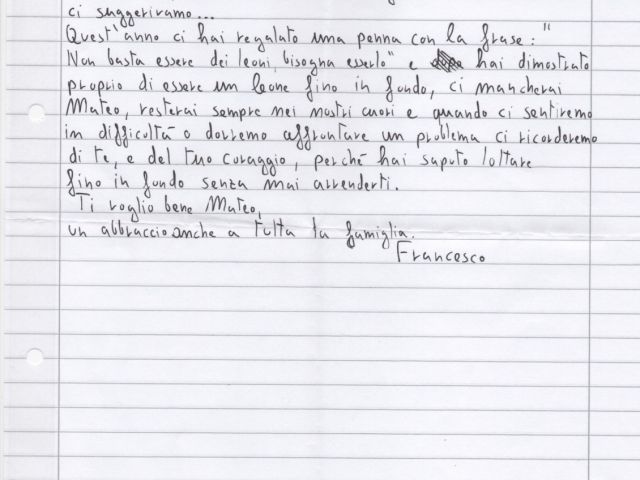 ci suggerivamo...
Quest'anno ci hai regalato una penna con la frase: "
Non basta essere dei leoni, bisogna esserlo" e hai dimostrato
proprio di essere un leone fino in fondo, ci mancherai
Mateo, resterai sempre nei nostri cuori e quando ci sentiremo
in difficoltà o dovremo affrontare un problema ci ricorderemo
di te, e del tuo coraggio, perché hai saputo lottare
fino in fondo senza mai arrenderti.
Ti voglio bene Mateo,
un abbraccio anche a tutta la famiglia.
Francesco